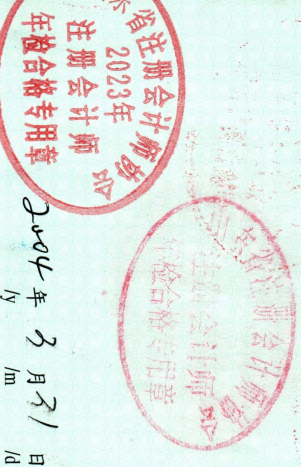 东省注册会计师协会
2023年
注册会计师
年检合格专用章
东省注册会计师协会
注册会计师
年检合格专用章
2004年3月31日
/y /m /d